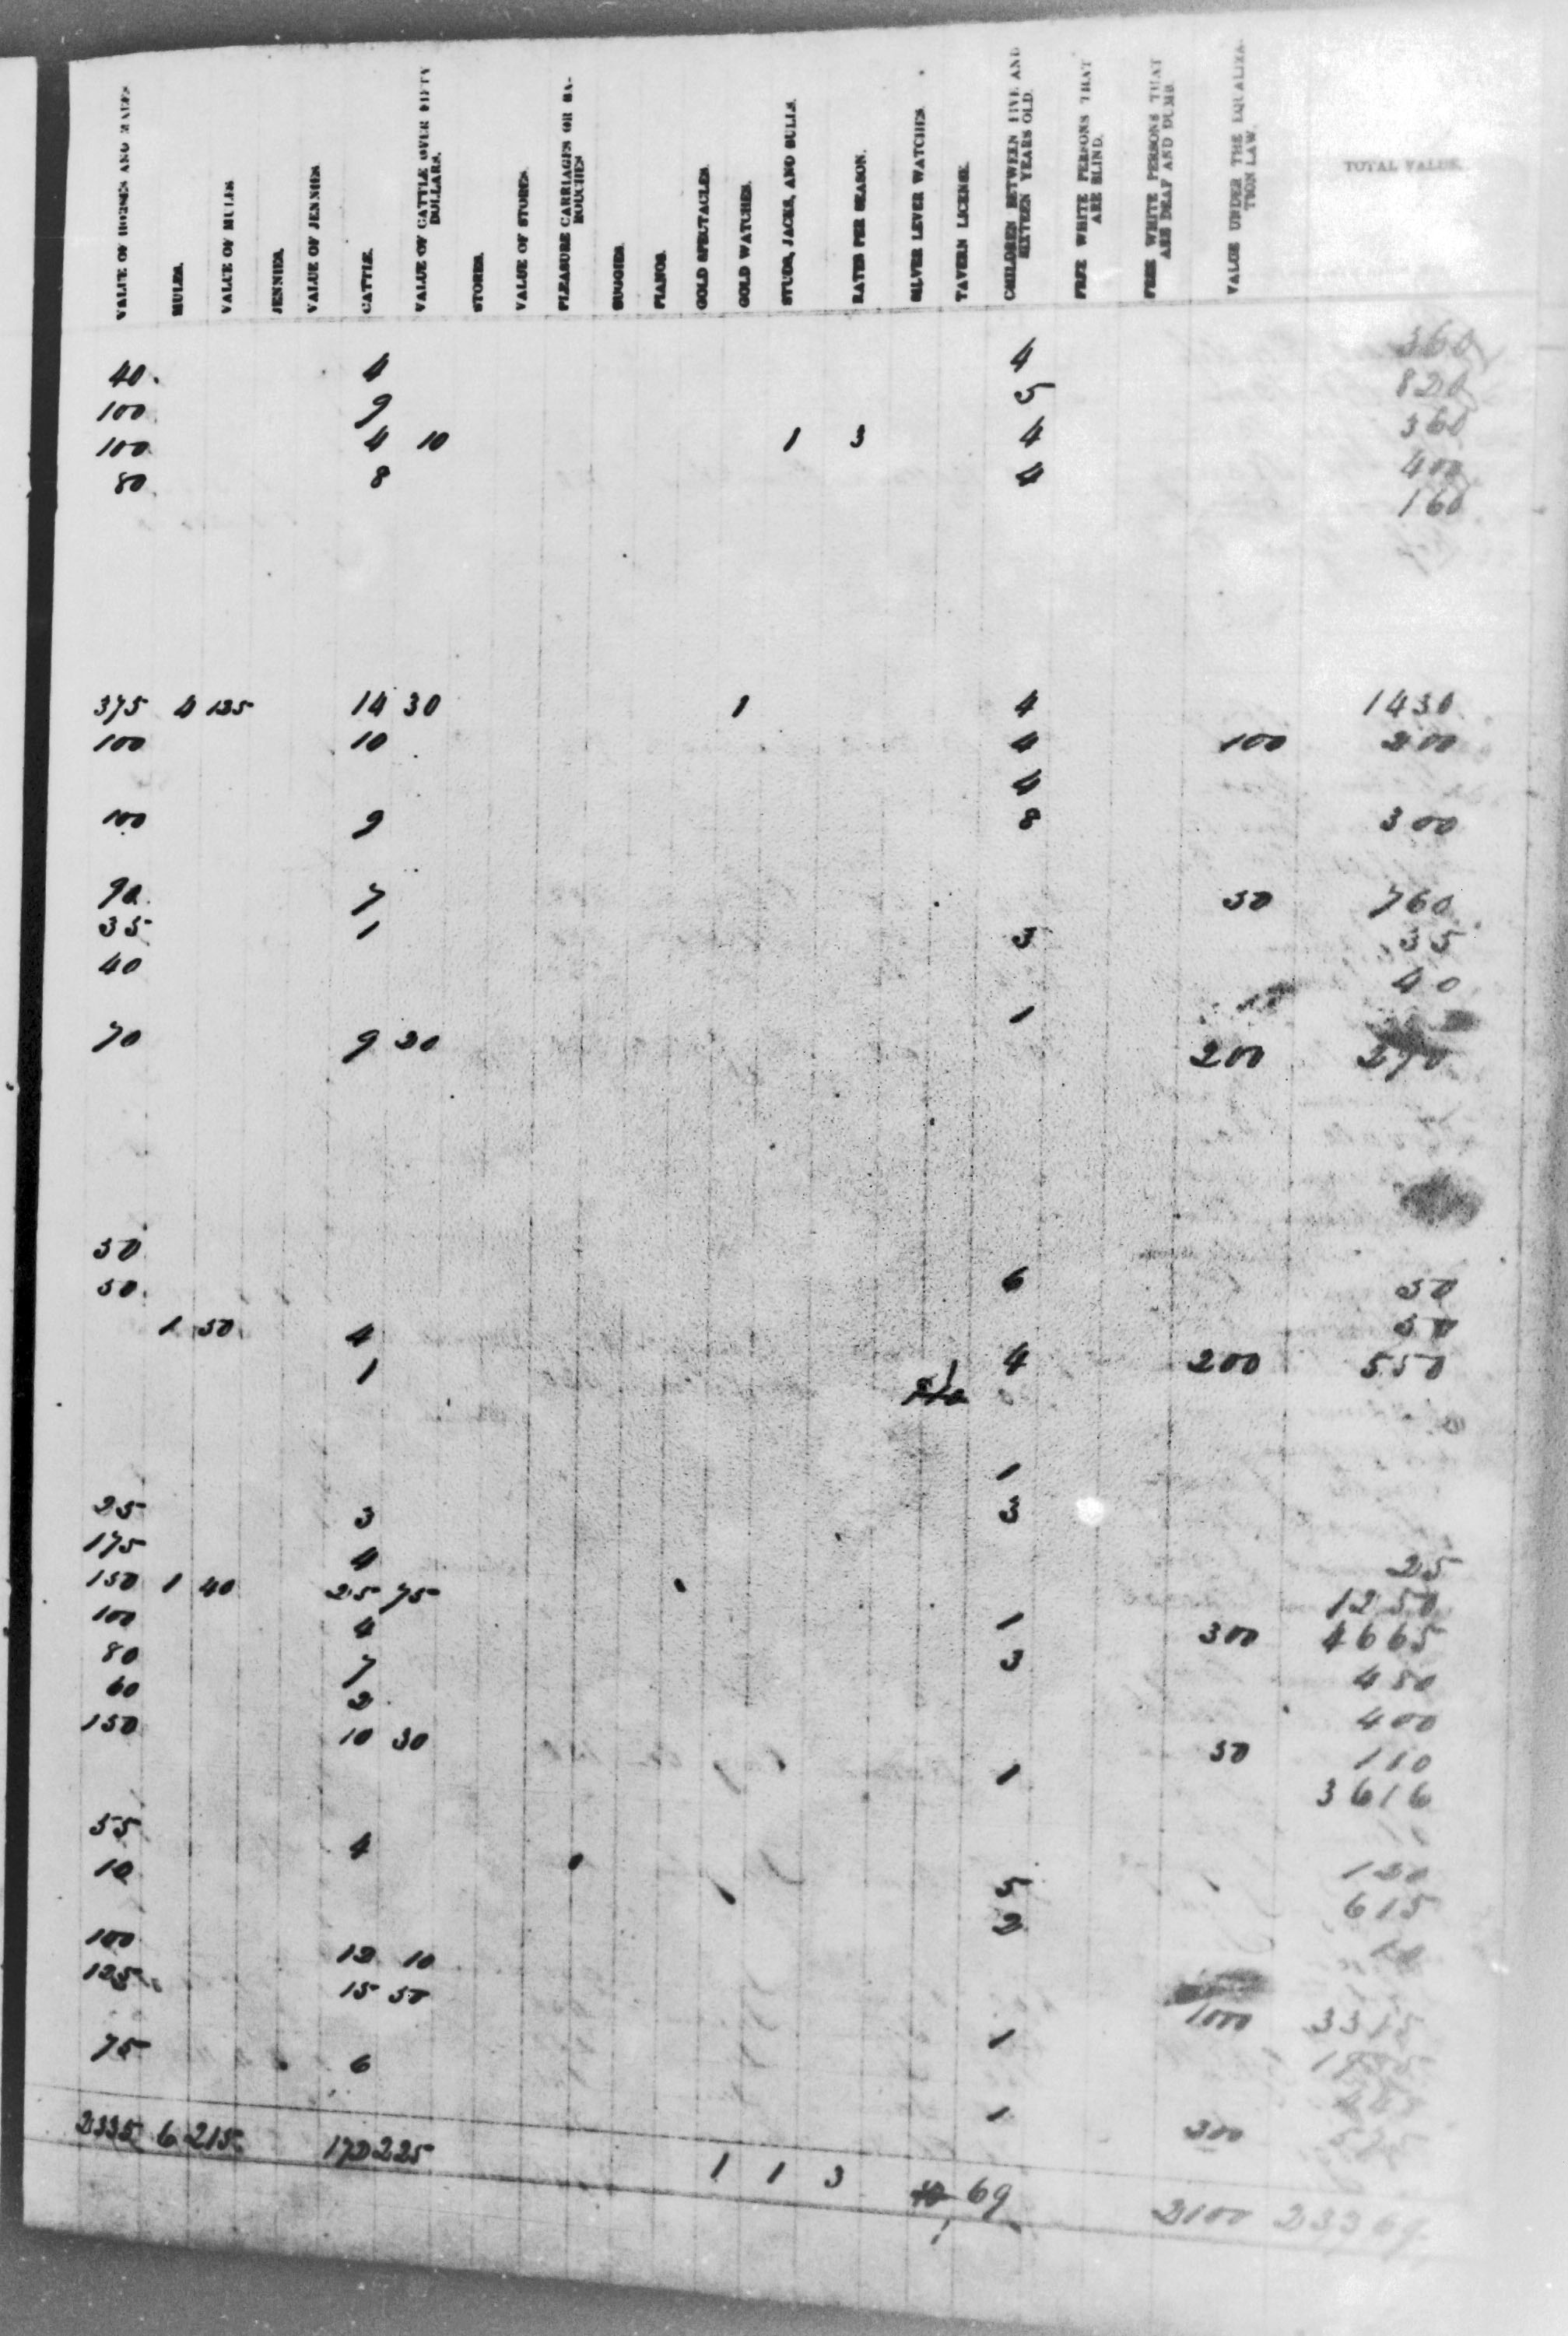 VALUE OF HORSES AND MARES
MULES.
VALUE OF MULES.
JENNIES.
VALUE OF JENNIES.
CATTLE.
VALUE OF CATTLE OVER FIFTY DOLLARS.
STORES.
VALUE OF STORES.
PLEASURE CARRIAGES OR BAROUCHES
BUGGIES.
PIANOS.
GOLD SPECTACLES.
GOLD WATCHES.
STUDS, JACKS, AND BULLS.
RATES PER SEASON.
SILVER LEVER WATCHES.
TAVERN LICENSE.
CHILDREN BETWEEN FIVE AND SIXTEEN YEARS OLD.
FREE WHITE PERSONS THAT ARE BLIND.
FREE WHITE PERSONS THAT ARE DEAF AND DUMB.
VALUE UNDER THE EQUALIZATION LAW.
TOTAL VALUE.
40 4 4 360
100 9 5 820
100 4 10 1 3 4 360
80 8 4 400
160
375 4 135 14 30 1 4 1430
100 10 4 100 200
4
100 9 8 300
90 7 50 760
35 1 3 35
40 40
1
70 9 20 200 270
50
50 6 50
1 50 4 50
1 4 200 550
1
25 3 3
175 4 25
150 1 40 25 75 1250
100 4 1 300 4665
80 7 3 450
60 2 400
150 10 30 50 110
1 3616
55 4 120
10 5 615
2 10
100 12 10
125 15 50 1000 3315
75 6 1
1 300
2335 6 215 172 225 1 1 3 1 69 2100